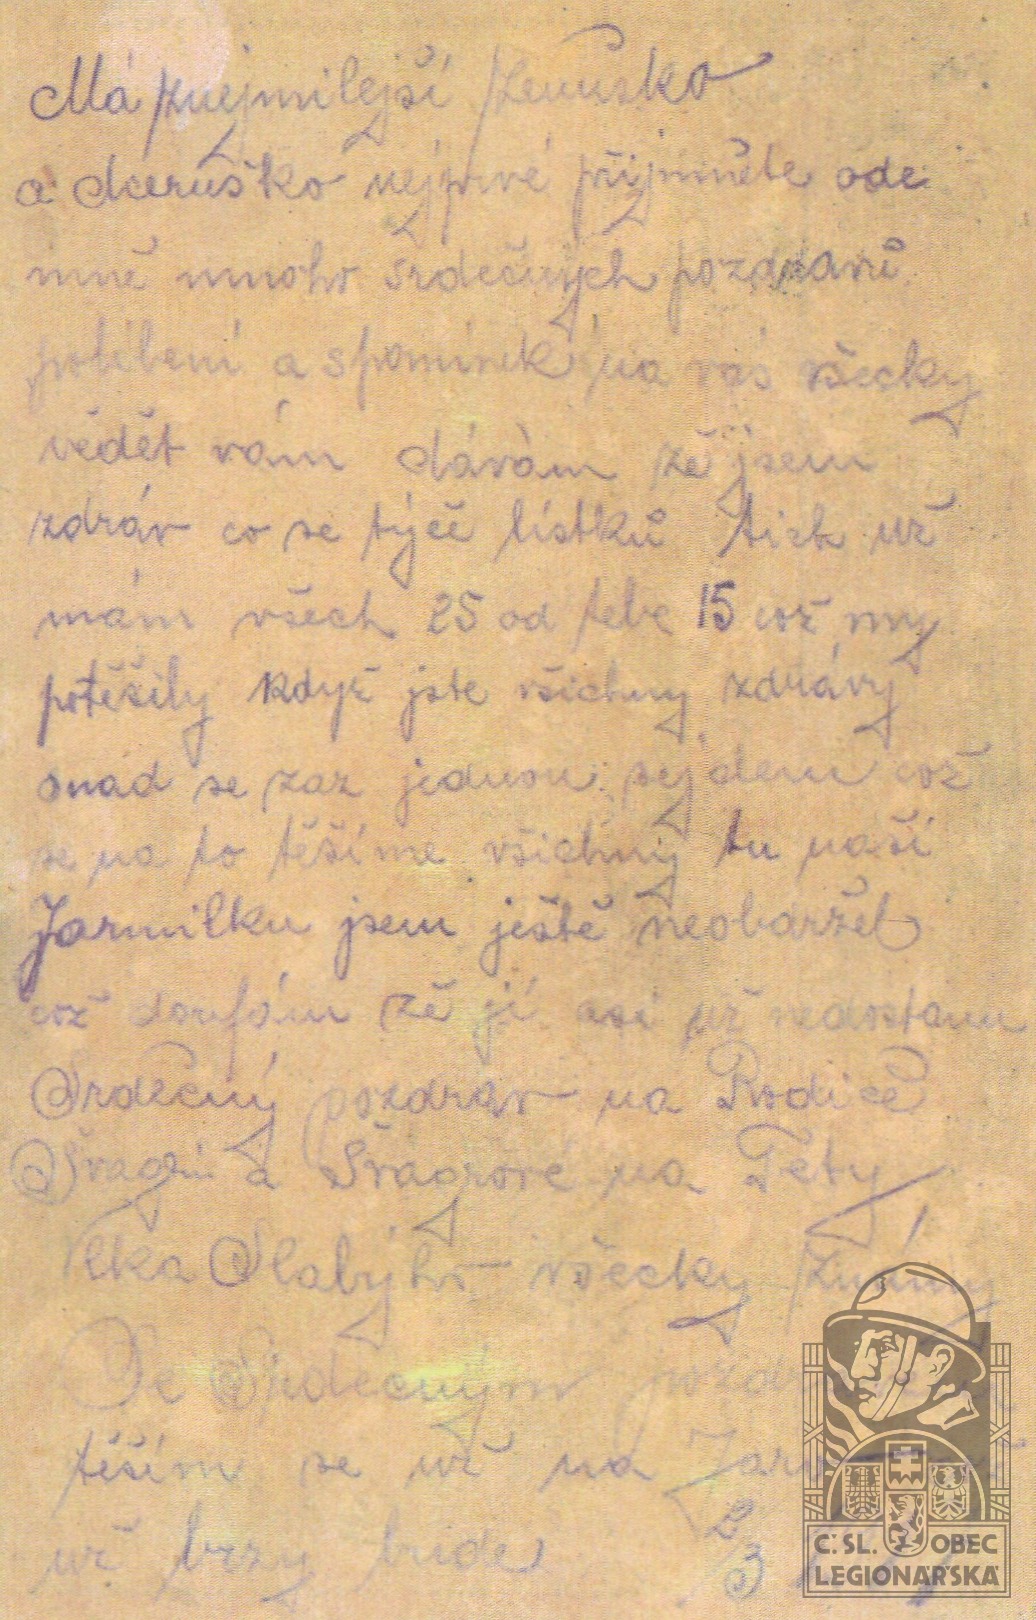 Má znejmilejší ženuško
a dceruško nejprvé příjmněte ode
mně mnoho srdečných pozdravů
políbení a spomínek na vás všecky
vědět vám dávám zě jsem
zdráv co se týče lístků tich už
mám všech 25 od tebe 15 což my
potěšily když jste všichny zdrávy
snád se zaz jednou sejdem což
se na to těšíme všichny tu naší
Jarmilku jsem ještě neobdržel
což doufám zě jí asi už nedostanu
Srdečný pozdrav na Rodiče
Švagri a Švagrové na Tety
Slabýho všecky známy
Se Srdečným
těším se už na
už brzy bude 2/3
Č. SL. OBEC
LEGIONÁŘSKÁ